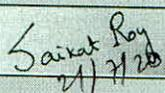 Saikat Roy
21/7/20